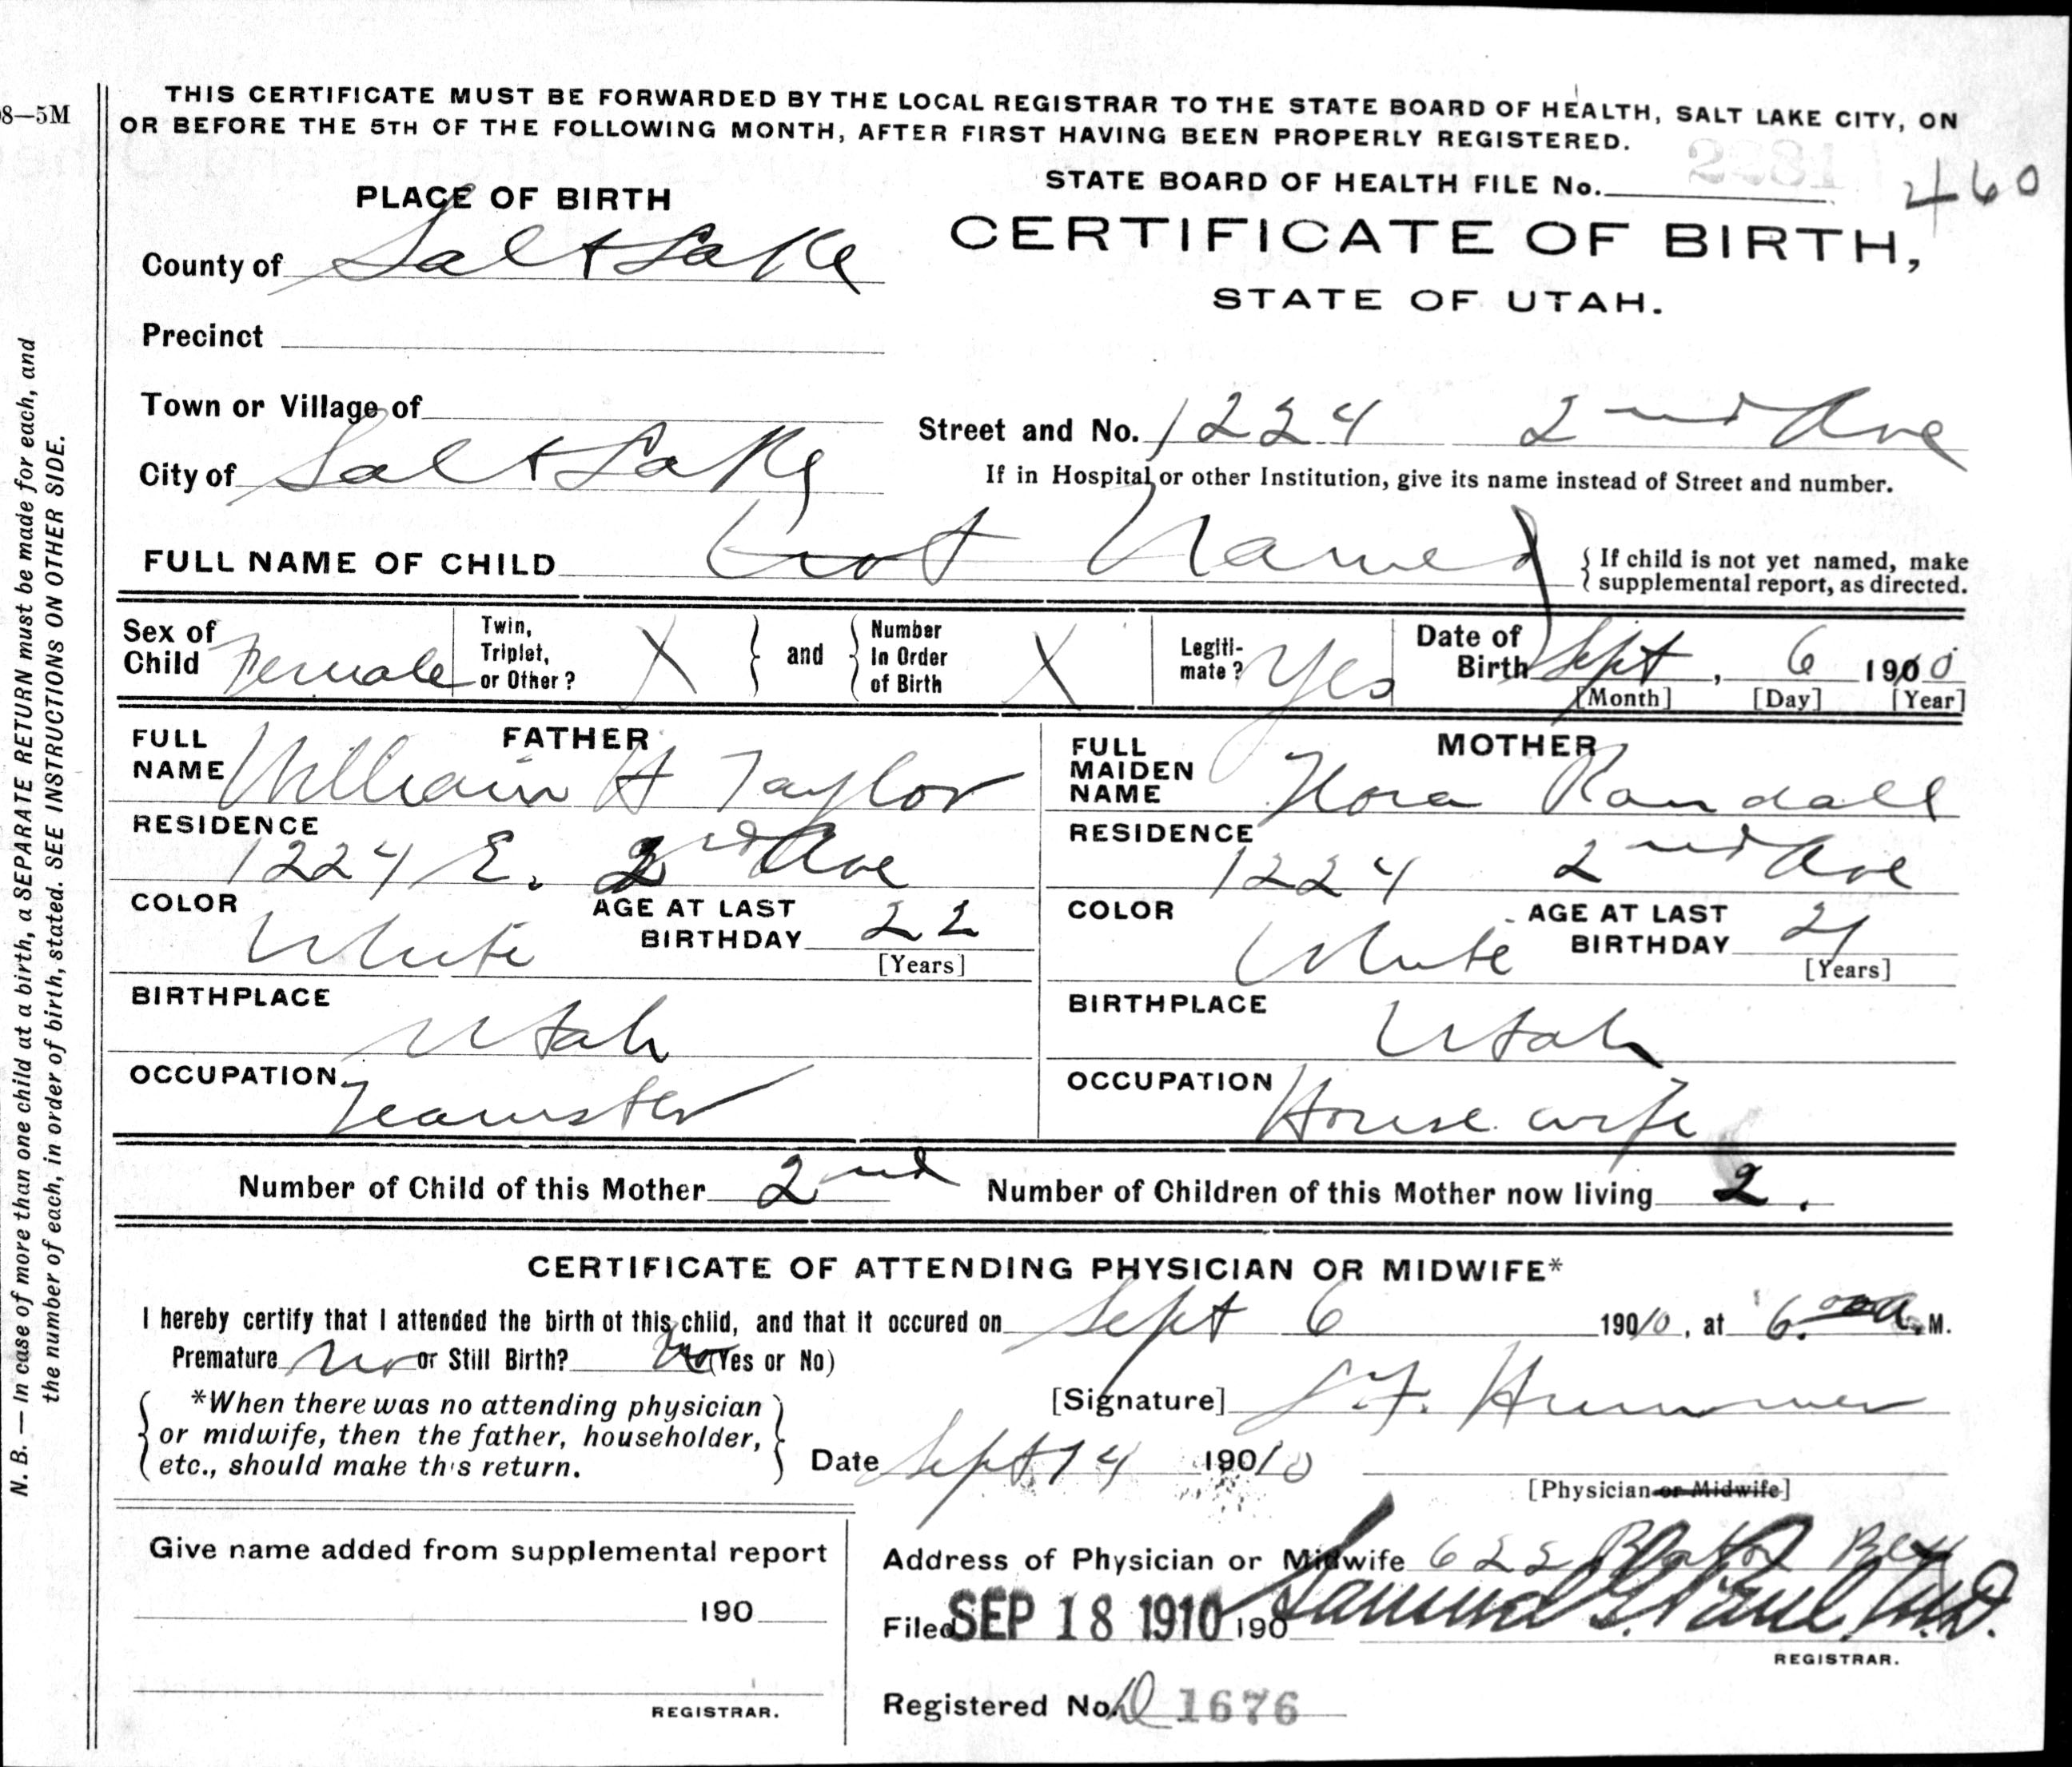 8—5M
THIS CERTIFICATE MUST BE FORWARDED BY THE LOCAL REGISTRAR TO THE STATE BOARD OF HEALTH, SALT LAKE CITY, ON
OR BEFORE THE 5TH OF THE FOLLOWING MONTH, AFTER FIRST HAVING BEEN PROPERLY REGISTERED.
STATE BOARD OF HEALTH FILE No. 460
PLACE OF BIRTH
CERTIFICATE OF BIRTH,
STATE OF UTAH.
County of Salt Lake
Precinct
Town or Village of
Street and No. 1224 2nd Ave
City of Salt Lake
If in Hospital or other Institution, give its name instead of Street and number.
FULL NAME OF CHILD Not Named
{ If child is not yet named, make
supplemental report, as directed.
Sex of Child Female
Twin, Triplet, or Other? X } and { Number In Order of Birth X
Legiti-mate? Yes
Date of Birth Sept, 6 1910
[Month] [Day] [Year]
FATHER
FULL NAME William H Taylor
RESIDENCE
1224 E. 2nd Ave
COLOR White
AGE AT LAST BIRTHDAY 22
[Years]
BIRTHPLACE
Utah
OCCUPATION
Teamster
MOTHER
FULL MAIDEN NAME Nora Randall
RESIDENCE
1224 2nd Ave
COLOR White
AGE AT LAST BIRTHDAY 21
[Years]
BIRTHPLACE
Utah
OCCUPATION
House wife
Number of Child of this Mother 2nd Number of Children of this Mother now living 2.
CERTIFICATE OF ATTENDING PHYSICIAN OR MIDWIFE*
I hereby certify that I attended the birth of this child, and that it occured on Sept 6 190/0, at 6.00 a. M.
Premature No or Still Birth? No (Yes or No)
{ *When there was no attending physician
or midwife, then the father, householder,
etc., should make this return. }
[Signature] L. F. Hummer
Date Sept 14 190/0
[Physician or Midwife]
Give name added from supplemental report
190
REGISTRAR.
Address of Physician or Midwife 622
Filed SEP 18 1910 190 Samuel G. Paul, M.D.
REGISTRAR.
Registered No. D 1676
N. B. — In case of more than one child at a birth, a SEPARATE RETURN must be made for each, and
the number of each, in order of birth, stated. SEE INSTRUCTIONS ON OTHER SIDE.